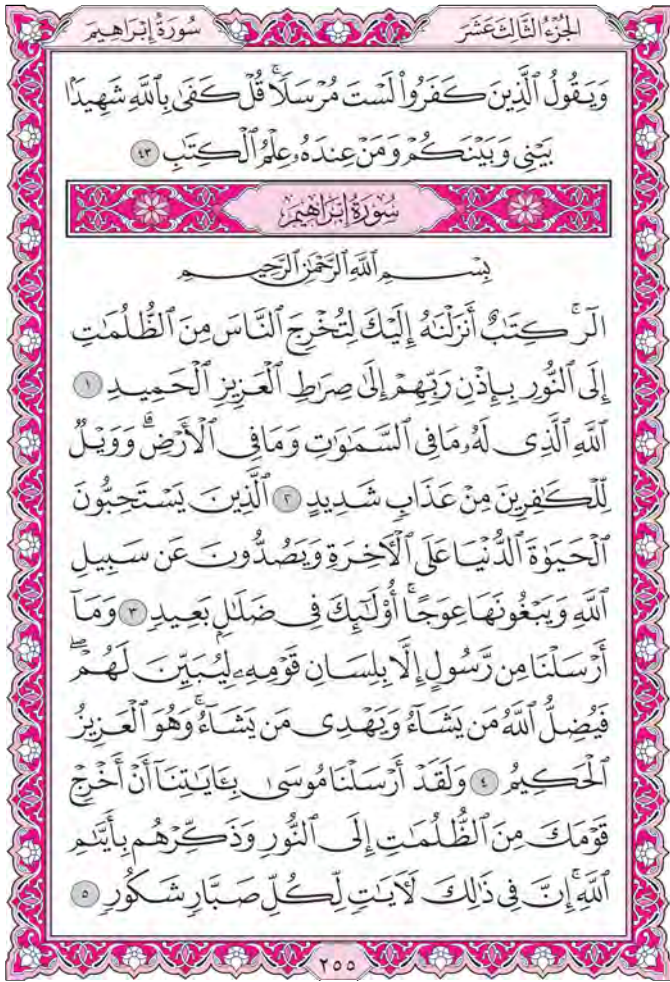 سُورَةُ إِبْرَاهِيمَ
الجُزْءُ الثَّالِثَ عَشَرَ
وَيَقُولُ ٱلَّذِينَ كَفَرُوا۟ لَسْتَ مُرْسَلًا ۚ قُلْ كَفَىٰ بِٱللَّهِ شَهِيدًۢا
بَيْنِى وَبَيْنَكُمْ وَمَنْ عِندَهُۥ عِلْمُ ٱلْكِتَٰبِ ٤٣
سُورَةُ إِبْرَاهِيمَ
بِسْمِ ٱللَّهِ ٱلرَّحْمَٰنِ ٱلرَّحِيمِ
الٓر ۚ كِتَٰبٌ أَنزَلْنَٰهُ إِلَيْكَ لِتُخْرِجَ ٱلنَّاسَ مِنَ ٱلظُّلُمَٰتِ
إِلَى ٱلنُّورِ بِإِذْنِ رَبِّهِمْ إِلَىٰ صِرَٰطِ ٱلْعَزِيزِ ٱلْحَمِيدِ ١
ٱللَّهِ ٱلَّذِى لَهُۥ مَا فِى ٱلسَّمَٰوَٰتِ وَمَا فِى ٱلْأَرْضِ ۗ وَوَيْلٌ
لِّلْكَٰفِرِينَ مِنْ عَذَابٍ شَدِيدٍ ٢ ٱلَّذِينَ يَسْتَحِبُّونَ
ٱلْحَيَوٰةَ ٱلدُّنْيَا عَلَى ٱلْءَاخِرَةِ وَيَصُدُّونَ عَن سَبِيلِ
ٱللَّهِ وَيَبْغُونَهَا عِوَجًا ۚ أُو۟لَٰٓئِكَ فِى ضَلَٰلٍۭ بَعِيدٍ ٣ وَمَآ
أَرْسَلْنَا مِن رَّسُولٍ إِلَّا بِلِسَانِ قَوْمِهِۦ لِيُبَيِّنَ لَهُمْ ۖ
فَيُضِلُّ ٱللَّهُ مَن يَشَآءُ وَيَهْدِى مَن يَشَآءُ ۚ وَهُوَ ٱلْعَزِيزُ
ٱلْحَكِيمُ ٤ وَلَقَدْ أَرْسَلْنَا مُوسَىٰ بِـَٔايَٰتِنَآ أَنْ أَخْرِجْ
قَوْمَكَ مِنَ ٱلظُّلُمَٰتِ إِلَى ٱلنُّورِ وَذَكِّرْهُم بِأَيَّىٰمِ
ٱللَّهِ ۚ إِنَّ فِى ذَٰلِكَ لَءَايَٰتٍ لِّكُلِّ صَبَّارٍ شَكُورٍ ٥
٢٥٥